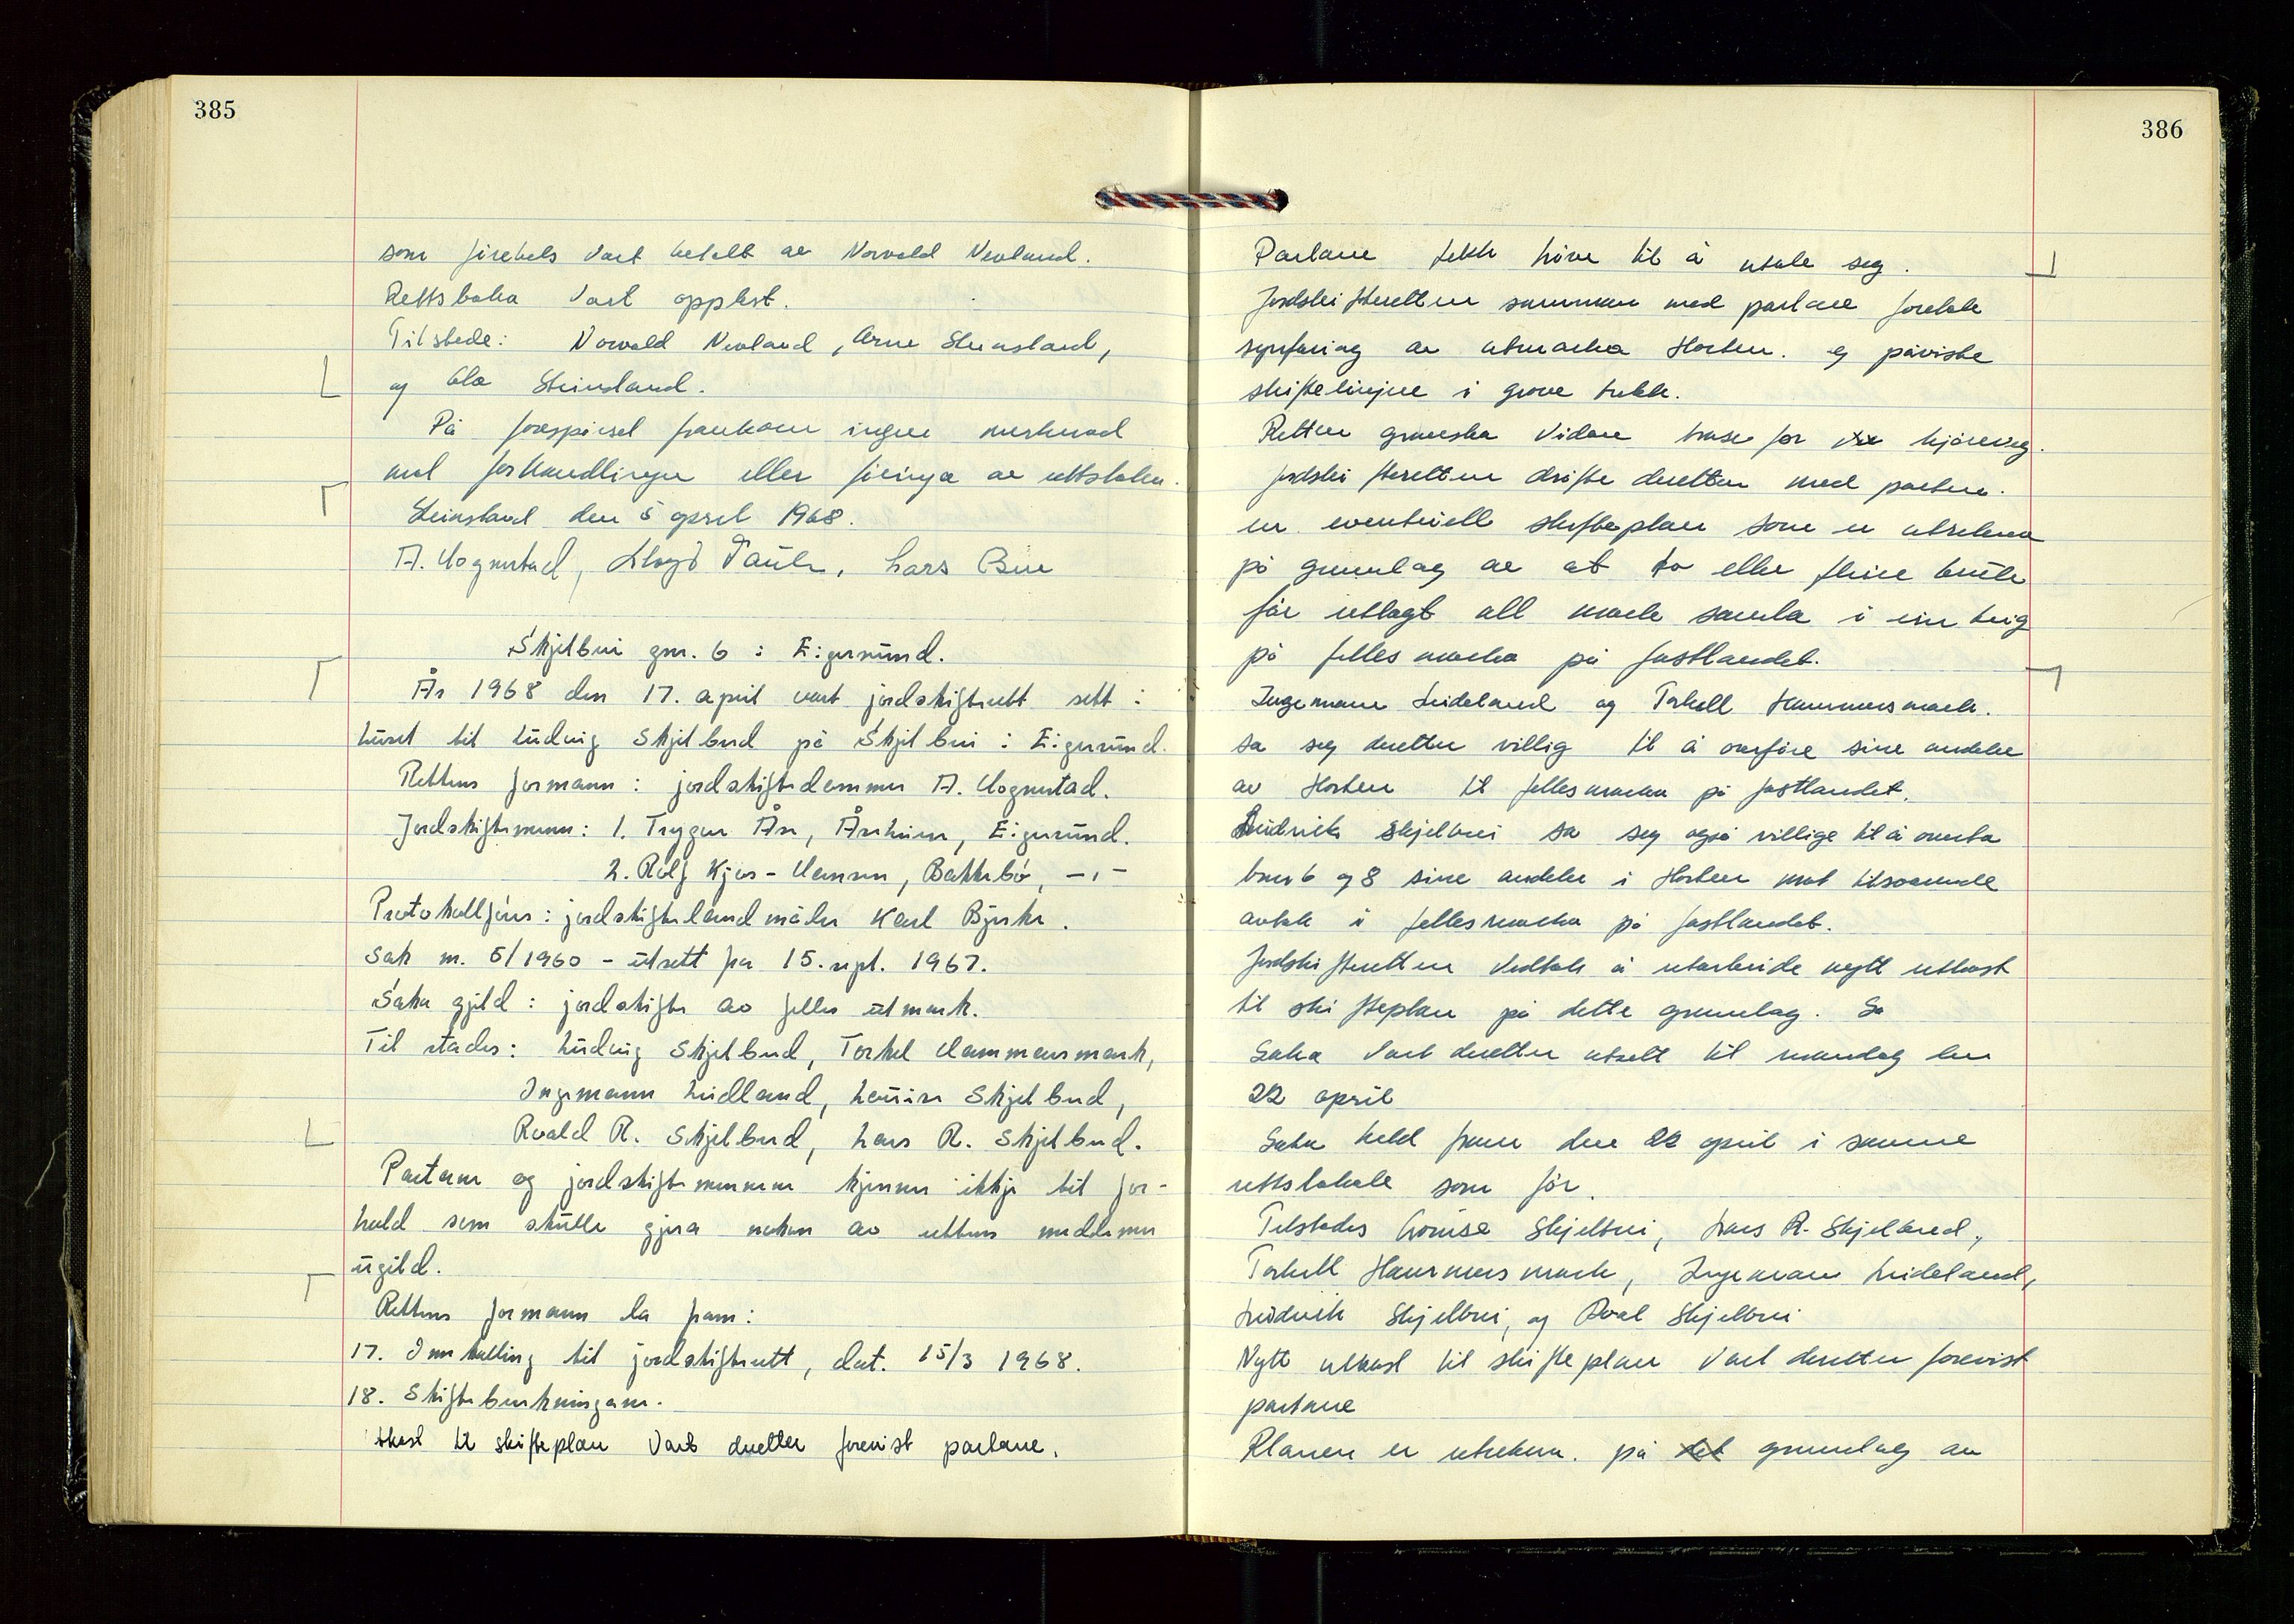 385
som førebels vart betalt av Norvald Nevland.
Rettsboka vart opplest.
Tilstede: Norvald Nevland, Arne Steinsland,
og Ola Steinsland.
På forespørsel framkom ingen merknad
mot forhandlingen eller føringa av rettsboka.
Steinsland den 5 april 1968.
A. Vognestad, Lars Bue
Skjelbrei gnr. 6 i Eigersund.
År 1968 den 17. april vart jordskifterett sett i
huset til Ludvig Skjelbred på Skjelbrei i Eigersund.
Rettens formann: jordskiftedommer A. Vognestad.
Jordskiftemenn: 1. Trygve År, Årheim, Eigersund.
2. Rolf Kjos-Hansen, Bakkebø, -"-
Protokollførar: jordskiftelandmåler Karl Bjerke.
Sak nr. 5/1960 - utsett fra 15. sept. 1967.
Saka gjeld: jordskifte av felles utmark.
Til stades: Ludvig Skjelbred, Torkel Hammersmark,
Ingemann Lindland, Louise Skjelbred,
Roald R. Skjelbred, Lars R. Skjelbred.
Partane og jordskiftemennene kjenner ikkje til for-
hold som skulle gjera nokon av rettens medlemer
ugild.
Rettens formann la fram:
17. Innkalling til jordskifterett, dat. 15/3 1968.
18. Skifteberekningane.
Utkast til skifteplan vart deretter forevist partane.
386
Partane fekk høve til å utale seg.
Jordskifteretten samman med partane foretok
synfaring av utmarka Horten. og påviste
skiftelinjene i grove trekk.
Retten granska vidare trase for kjøreveg.
Jordskifteretten drøfte deretter med partene.
en eventuell skifteplan som er utrekna
på grunnlag av at to eller fleire bruk
får utlagt all mark samla i ein teig
på felles marka på fastlandet.
Ingemann Leideland og Torkell Hammersmark.
sa seg deretter villig til å overføre sine andeler
av Horten til fellesmarka på fastlandet.
Ludvik Skjelbrei sa seg også villige til å overta
bnr 6 og 8 sine andeler i Horten mot tilsvarende
avtak i fellesmarka på fastlandet.
Jordskifteretten vedtok å utarbeide nytt utkast
til skifteplan på dette grunnlag. Sa
Saka vart deretter utsett til mandag den
22 april
Saka held fram den 22 april i samme
rettslokale som før.
Tilstades Louise Skjelbrei, Lars R. Skjelbred,
Torkell Hammersmark, Ingemann Leideland,
Ludvik Skjelbrei, og Roal Skjelbrei
Nytt utkast til skifteplan vart deretter forevist
partane
Planen er utrekna. på det grunnlag av